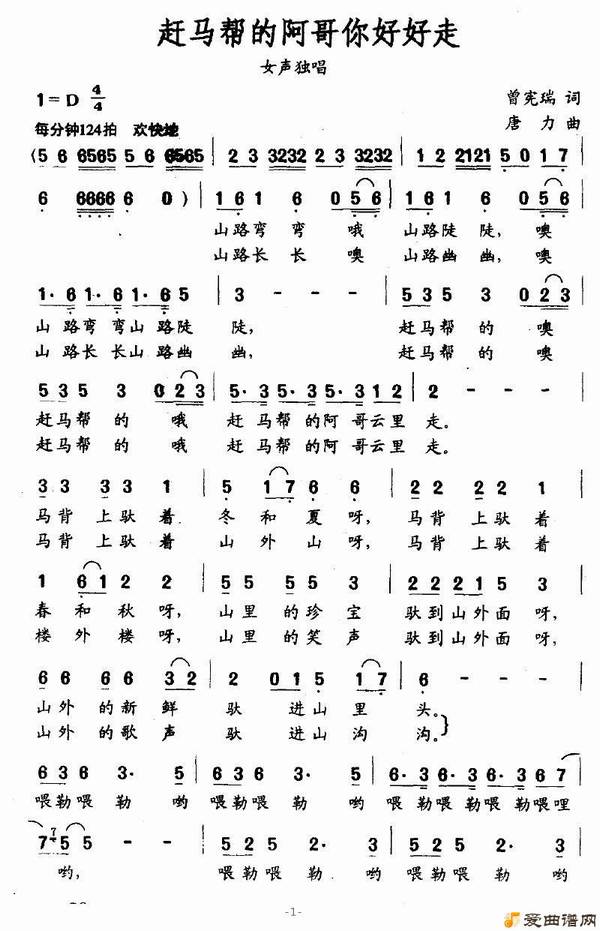 赶马帮的阿哥你好好走
女声独唱
1=D 4/4
曾宪瑞 词
每分钟124拍 欢快地
唐 力 曲
(5 6 6565 5·6 6565 | 2 3 3232 2·3 3232 | 1 2 2121 5 0 1 7 |
6 6666 6 0) | 1 6 1 6 0 5 6 | 1 6 1 6 0 5 6 |
山路弯 弯 哦 山路陡 陡, 噢
山路长 长 噢 山路幽 幽, 噢
1· 6 1· 6 1· 6 5 | 3 - - - | 5 3 5 3 0 2 3 |
山 路弯 弯山 路陡 陡, 赶马帮 的 噢
山 路长 长山 路幽 幽, 赶马帮 的 噢
5 3 5 3 0 2 3 | 5· 3 5· 3 5· 3 1 2 | 2 - - - |
赶马帮 的 哦 赶 马帮 的阿 哥云里 走。
赶马帮 的 哦 赶 马帮 的阿 哥云里 走。
3 3 3 3 2 | 5 1 7 6 6 | 2 2 2 2 1 |
马背 上驮着 冬和夏呀, 马背 上驮着
马背 上驮着 山外山呀, 马背 上驮着
1 6 1 2 2 | 5 5 5 5 3 | 2 2 2 1 5 3 |
春和秋呀, 山里 的珍宝 驮到山外面呀,
楼外楼呀, 山里 的笑声 驮到山外面呀,
6 6 6 6 3 2 | 2 0 1 5 1 7 | 6 - - - |
山外 的新鲜 驮 进山里 头。
山外 的歌声 驮 进山沟 沟。
6 3 6 3· 5 | 5 2 5 2· 3 | 6· 3 6· 3 6· 3 6 7 |
喂勒喂 勒 哟 喂勒喂 勒 哟 喂勒喂勒喂勒喂哩
7 5 5 - - | 5 2 5 2· 3 | 5 2 5 2· 3 |
哟, 喂勒喂 勒 哟 喂勒喂 勒 哟
-1-
爱曲谱网